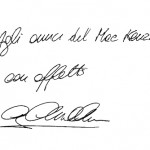 Agli amici del Mac Kenz
con affetto